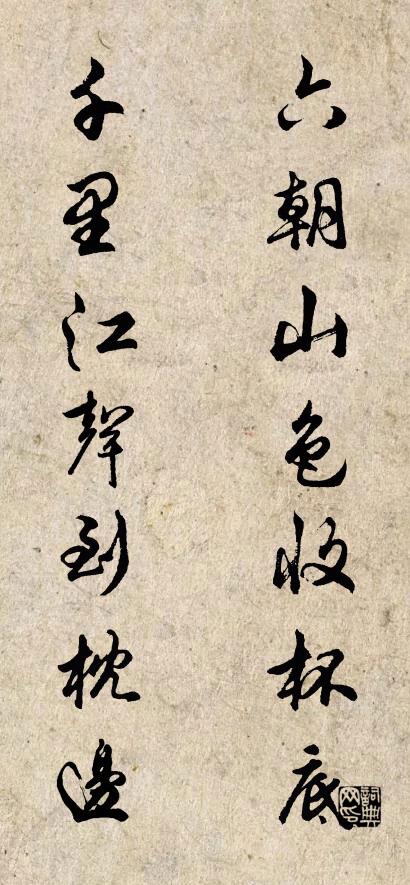 六朝山色收杯底
千里江聲到枕邊
詞典网印